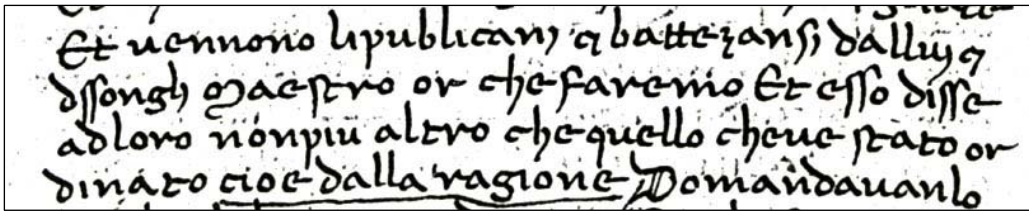 Et uennono lipublicanj ⁊ battezansj dalluj ⁊
dssonglj Maestro or che faremo Et esso disse
adloro nonpiu altro che quello cheue stato or
dinato cioe dalla ragione Domandauanlo